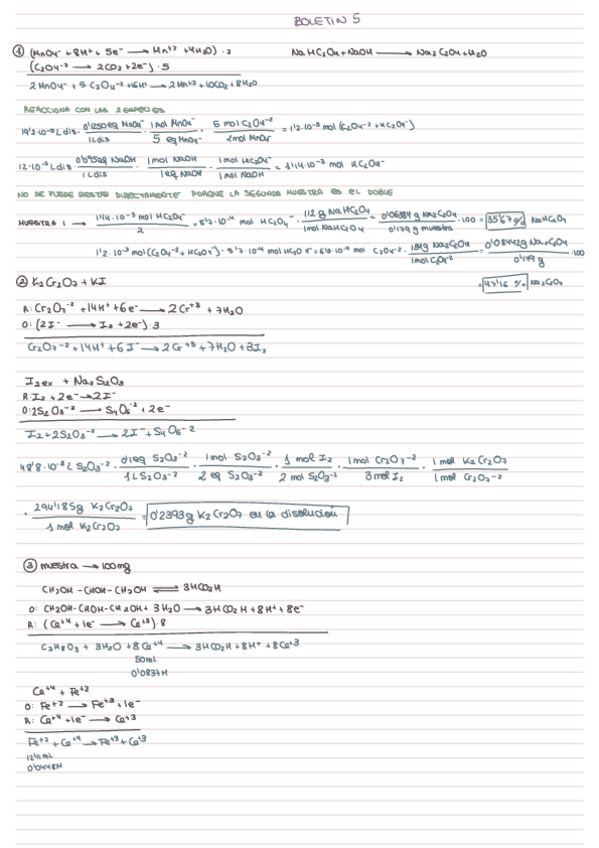 BOLETIN 5
① (MnO4⁻ + 8H⁺ + 5e⁻ → Mn⁺² + 4H2O) · 2 NaHC2O4 + NaOH → Na2C2O4 + H2O
(C2O4⁻² → 2CO2 + 2e⁻) · 5
2MnO4⁻ + 5C2O4⁻² + 16H⁺ → 2Mn⁺² + 10CO2 + 8H2O
REACCIONA CON LAS 2 ESPECIES
19'2·10⁻³ L dis · 0'1250 eq MnO4⁻ / 1L dis · 1mol MnO4⁻ / 5 eq MnO4⁻ · 5 mol C2O4⁻² / 2mol MnO4⁻ = 1'2·10⁻³ mol (C2O4⁻² + HC2O4⁻)
12·10⁻³ L dis · 0'095 eq NaOH / 1L dis · 1mol NaOH / 1eq NaOH · 1mol HC2O4⁻ / 1mol NaOH = 1'14·10⁻³ mol HC2O4⁻
NO SE PUEDE RESTAR DIRECTAMENTE PORQUE LA SEGUNDA MUESTRA ES EL DOBLE
MUESTRA 1 → 1'14·10⁻³ mol HC2O4⁻ / 2 = 5'7·10⁻⁴ mol HC2O4⁻ · 112 g NaHC2O4 / 1mol NaHC2O4 = 0'06384 g NaC2O4 / 0'179 g muestra · 100 = 35'67 % NaHC2O4
1'2·10⁻³ mol (C2O4⁻² + HC2O4⁻) - 5'7·10⁻⁴ mol HC2O4⁻ = 6'3·10⁻⁴ mol C2O4⁻² · 134g Na2C2O4 / 1mol C2O4⁻² = 0'08442g Na2C2O4 / 0'179 g · 100
= 47'16 % Na2C2O4
② K2Cr2O7 + KI
R: Cr2O7⁻² + 14H⁺ + 6e⁻ → 2Cr⁺³ + 7H2O
O: (2I⁻ → I2 + 2e⁻) · 3
Cr2O7⁻² + 14H⁺ + 6I⁻ → 2Cr⁺³ + 7H2O + 3I2
I2 ex + Na2S2O3
R: I2 + 2e⁻ → 2I⁻
O: 2S2O3⁻² → S4O6⁻² + 2e⁻
I2 + 2S2O3⁻² → 2I⁻ + S4O6⁻²
48'8·10⁻³ L S2O3⁻² · 0'1eq S2O3⁻² / 1L S2O3⁻² · 1mol S2O3⁻² / 2 eq S2O3⁻² · 1 mol I2 / 2 mol S2O3⁻² · 1mol Cr2O7⁻² / 3mol I2 · 1 mol K2Cr2O7 / 1mol Cr2O7⁻²
· 294'185g K2Cr2O7 / 1 mol K2Cr2O7 = 0'2393g K2Cr2O7 en la disolución
③ muestra → 100mg
CH2OH - CHOH - CH2OH ⇌ 3HCO2H
O: CH2OH-CHOH-CH2OH + 3H2O → 3HCO2H + 8H⁺ + 8e⁻
R: (Ce⁺⁴ + 1e⁻ → Ce⁺³) · 8
C3H8O3 + 3H2O + 8Ce⁺⁴ → 3HCO2H + 8H⁺ + 8Ce⁺³
50mL
0'0837M
Ce⁺⁴ + Fe⁺²
O: Fe⁺² → Fe⁺³ + 1e⁻
R: Ce⁺⁴ + 1e⁻ → Ce⁺³
Fe⁺² + Ce⁺⁴ → Fe⁺³ + Ce⁺³
12'11mL
0'0448M